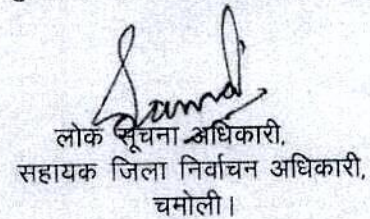 लोक सूचना अधिकारी,
सहायक जिला निर्वाचन अधिकारी,
चमोली।